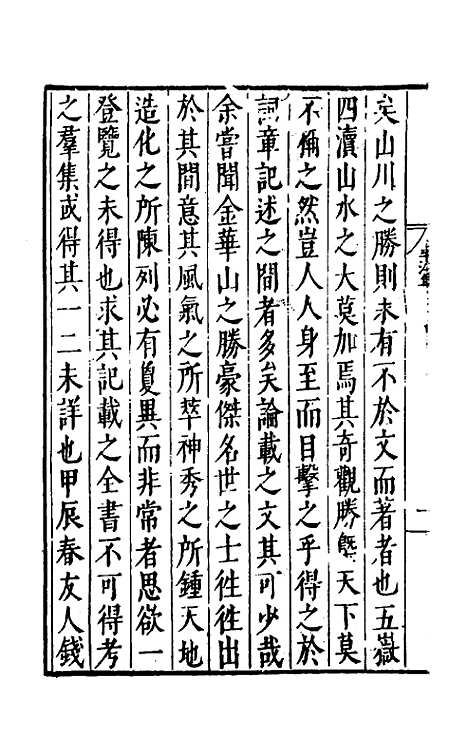 矣山川之勝則未有不於文而著者也五嶽
四瀆山水之大莫加焉其奇觀勝槩天下莫
不偁之然豈人人身至而目擊之乎得之於
詞章記述之間者多矣論載之文其可少哉
余嘗聞金華山之勝豪傑名世之士徃徃出
於其間意其風氣之所萃神秀之所鍾天地
造化之所陳列必有夐異而非常者思欲一
登覽之未得也求其記載之全書不可得考
之羣集或得其一二未詳也甲辰春友人錢